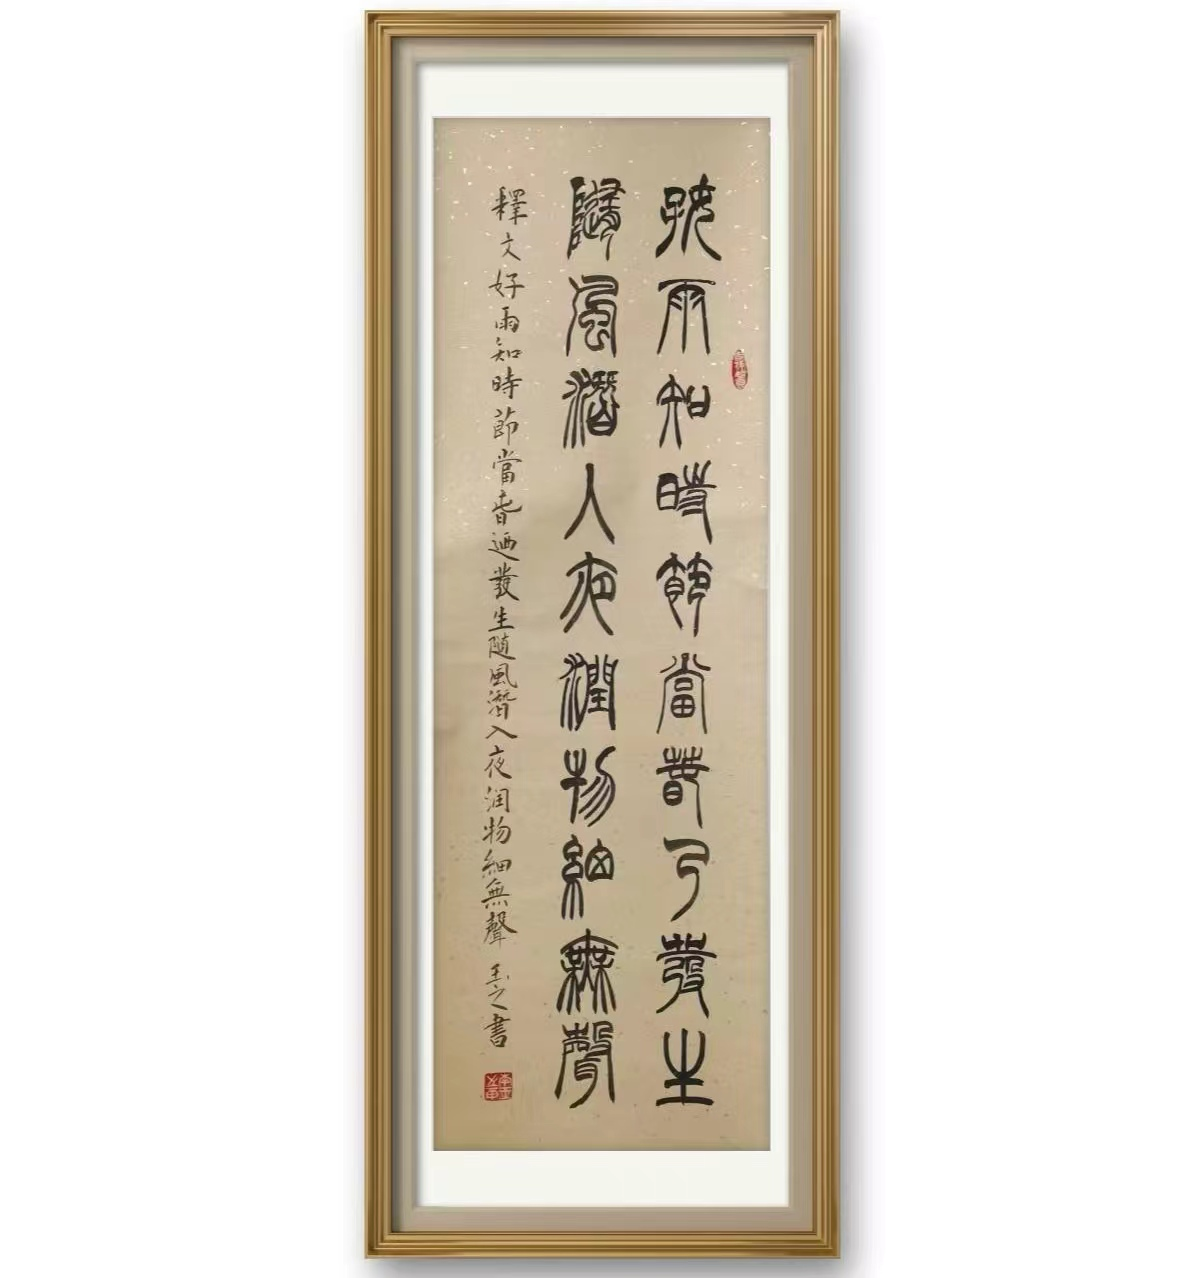 好雨知時節當春乃發生
隨風潛入夜潤物細無聲
釋文好雨知時節當春迺發生隨風潛入夜润物細無聲 玉之書